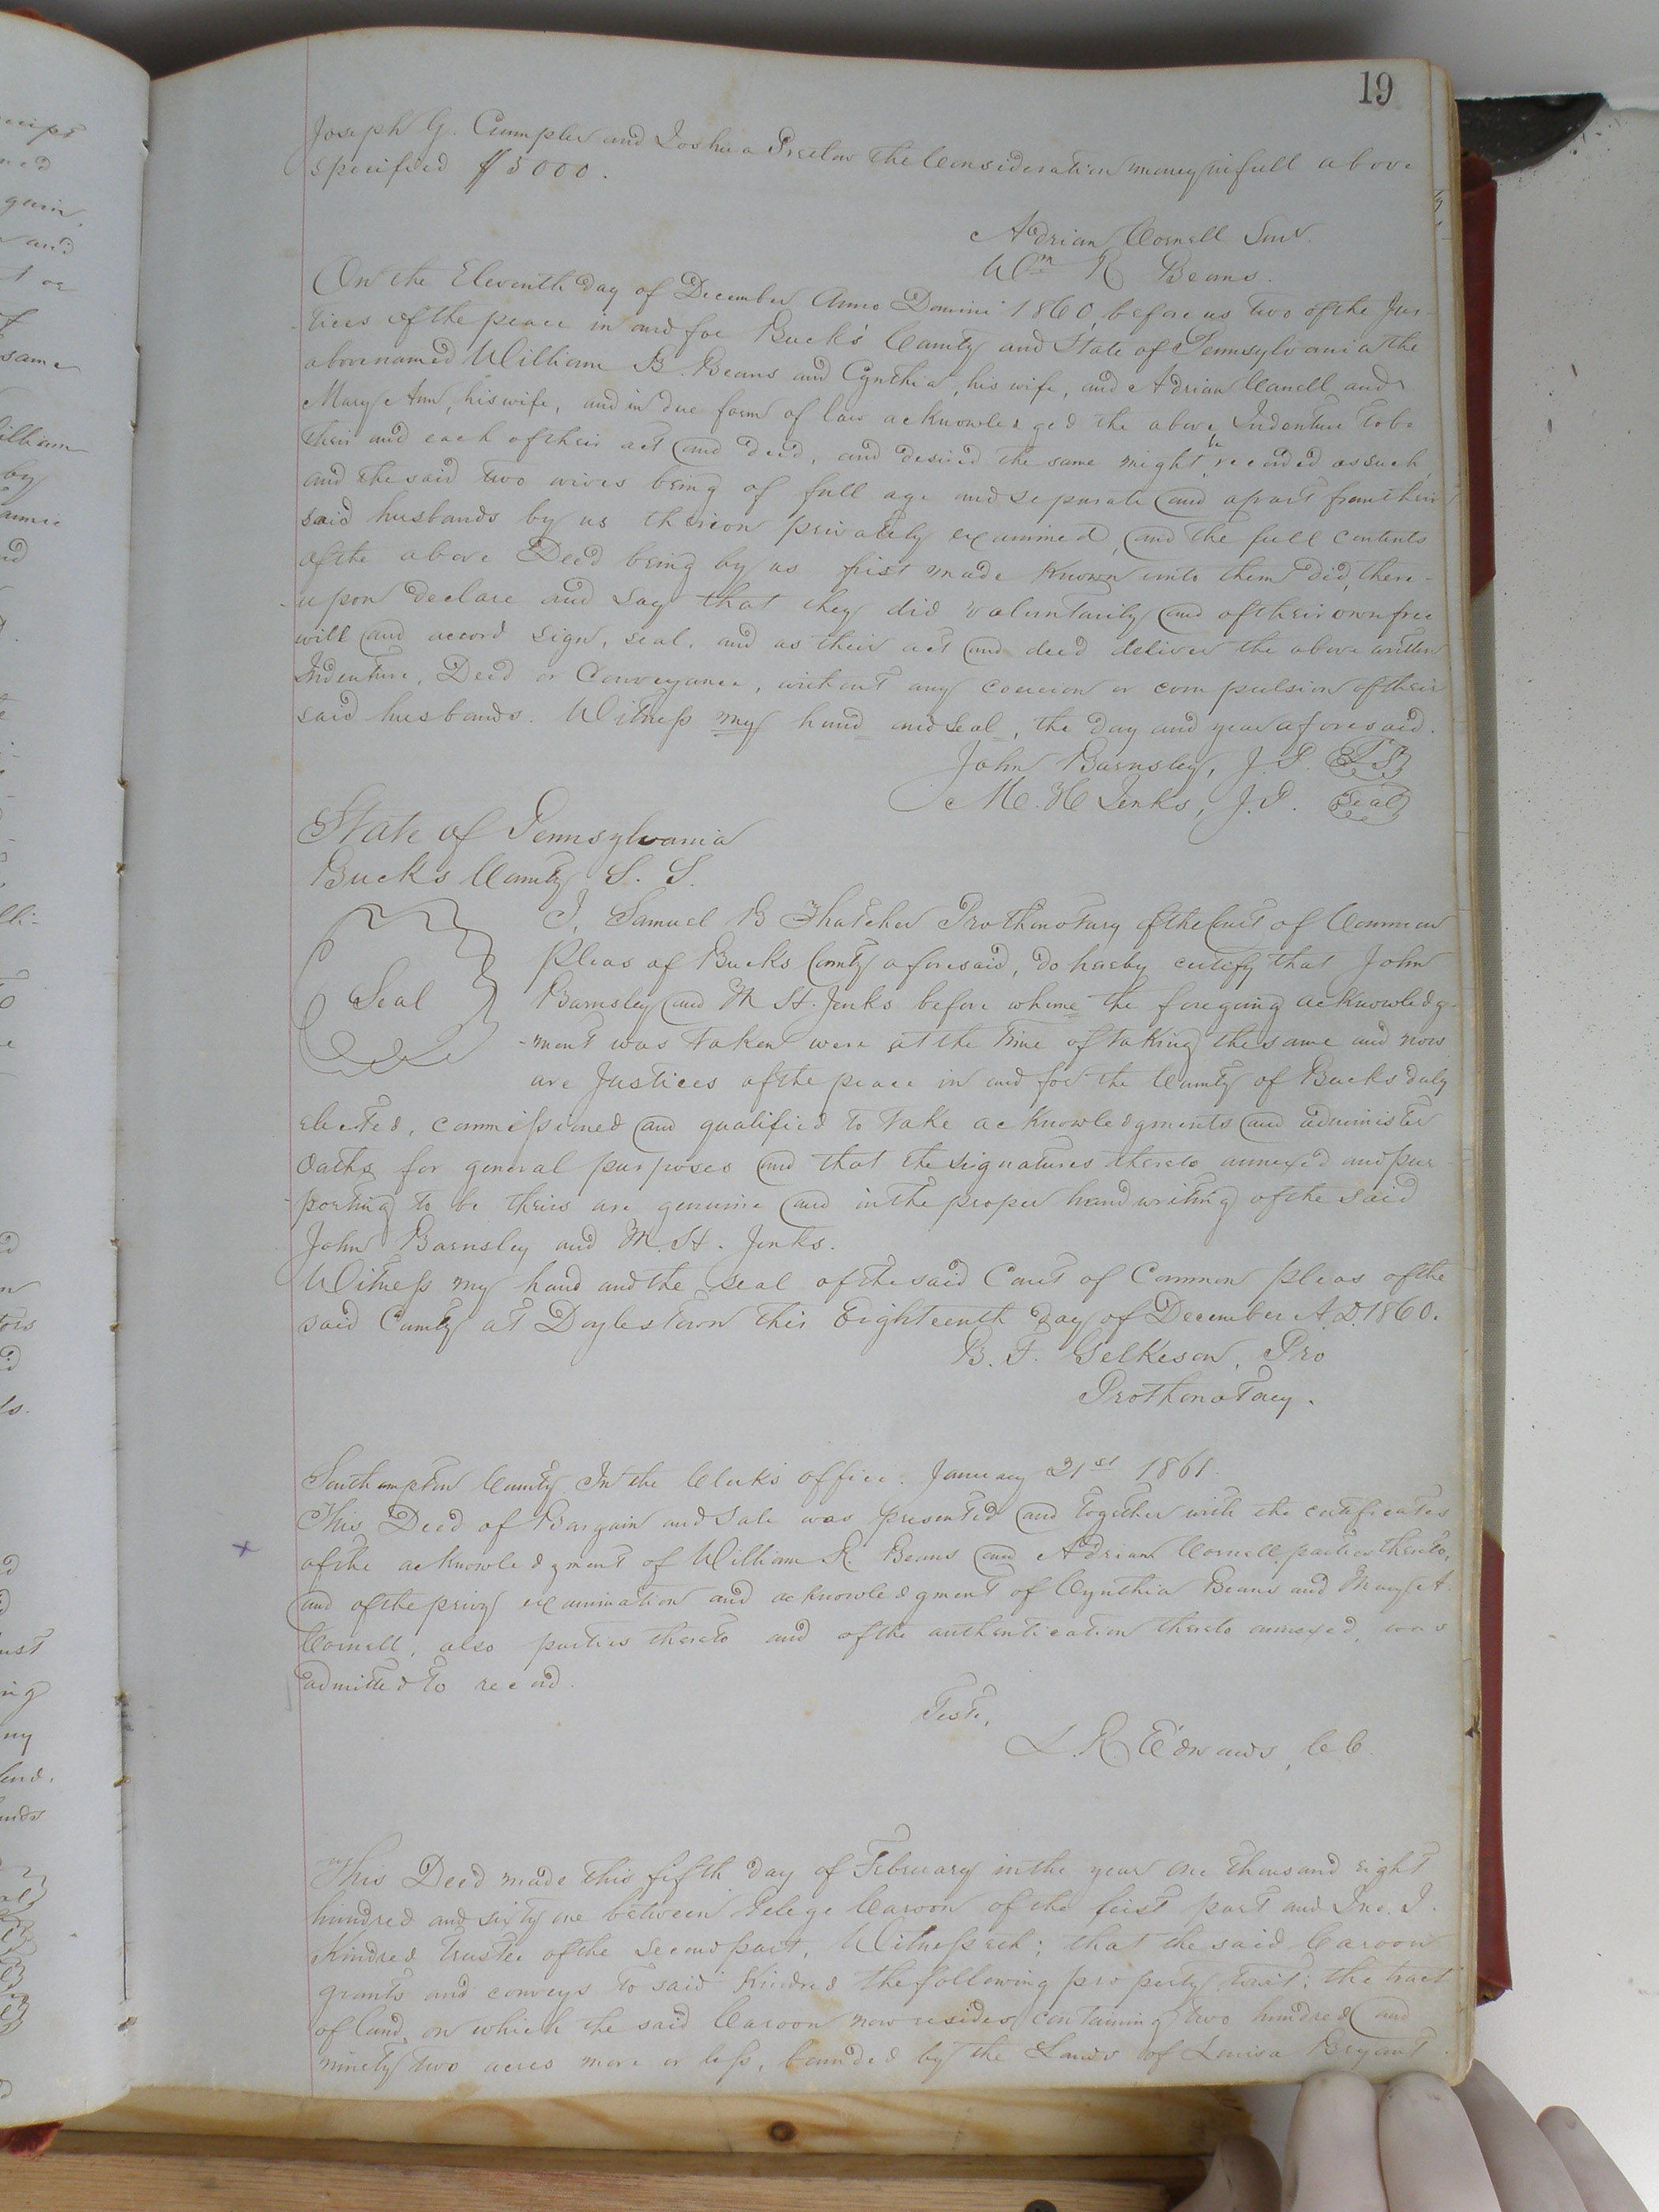 19
Joseph G. Crumpler and Joshua Pretlow the Consideration money in full above
specified $5000.
Adrian Cornell Senr.
Wm R Beans.
On the Eleventh day of December Anno Domini 1860, before us two of the Jus-
tices of the peace in and for Buck's County and State of Pennsylvania the
above named William B. Beans and Cynthia, his wife, and Adrian Conell and
Mary Ann, his wife, and in due form of law acknowledged the above Indenture to be
their and each of their act and deed, and desired the same might be recorded as such,
and the said two wives being of full age and separate and apart from their
said husbands by us thereon privately examined, and the full contents
of the above Deed being by us first made known unto them did, there-
-upon declare and say that they did voluntarily and of their own free
will and accord sign, seal, and as their act and deed deliver the above written
Indenture, Deed or Conveyance, without any coercion or compulsion of their
said husbands. Witness my hand and seal, the day and year aforesaid.
John Barnsley, J. P. LS
M. H Jenks, J. P. Seal
State of Pennsylvania
Bucks County S. S.
I, Samuel B Thatcher Prothonotary of the Court of Common
Pleas of Bucks County aforesaid, do hereby certify that John
Seal Barnsley and M H. Jenks before whome the foregoing acknowledg-
-ment was taken were at the time of taking the same and now
are Justices of the peace in and for the County of Bucks duly
elected, commissioned and qualified to take acknowledgments and administer
Oaths for general purposes and that the signatures thereto annexed and pur-
-porting to be theirs are genuine and in the proper hand writing of the said
John Barnsley and M. H. Jenks.
Witness my hand and the seal of the said Court of Common Pleas of the
said County at Doylestown this Eighteenth day of December A.D. 1860.
B. F. Gelkeson, Pro
Prothonotary.
Southampton County In the Clerk's office. January 21st 1861.
This Deed of Bargain and Sale was presented and together with the certificates
of the acknowledgment of William R. Beans and Adrian Cornell parties thereto,
and of the privy examination and acknowledgment of Cynthia Beans and Mary A.
Cornell, also parties thereto and of the authentication thereto annexed, was
admitted to record.
Teste,
L. R Edwards, C. C.
This Deed made this fifth day of February in the year one thousand eight
hundred and sixty one between Pelege Caroon of the first part and Jno. J.
Kindred Trustee of the second part, Witnesseth; that the said Caroon
grants and conveys to said Kindred the following property towit: the tract
of land, on which the said Caroon now resides containing two hundred and
ninety two acres more or less, bounded by the Lands of Louisa Bryant